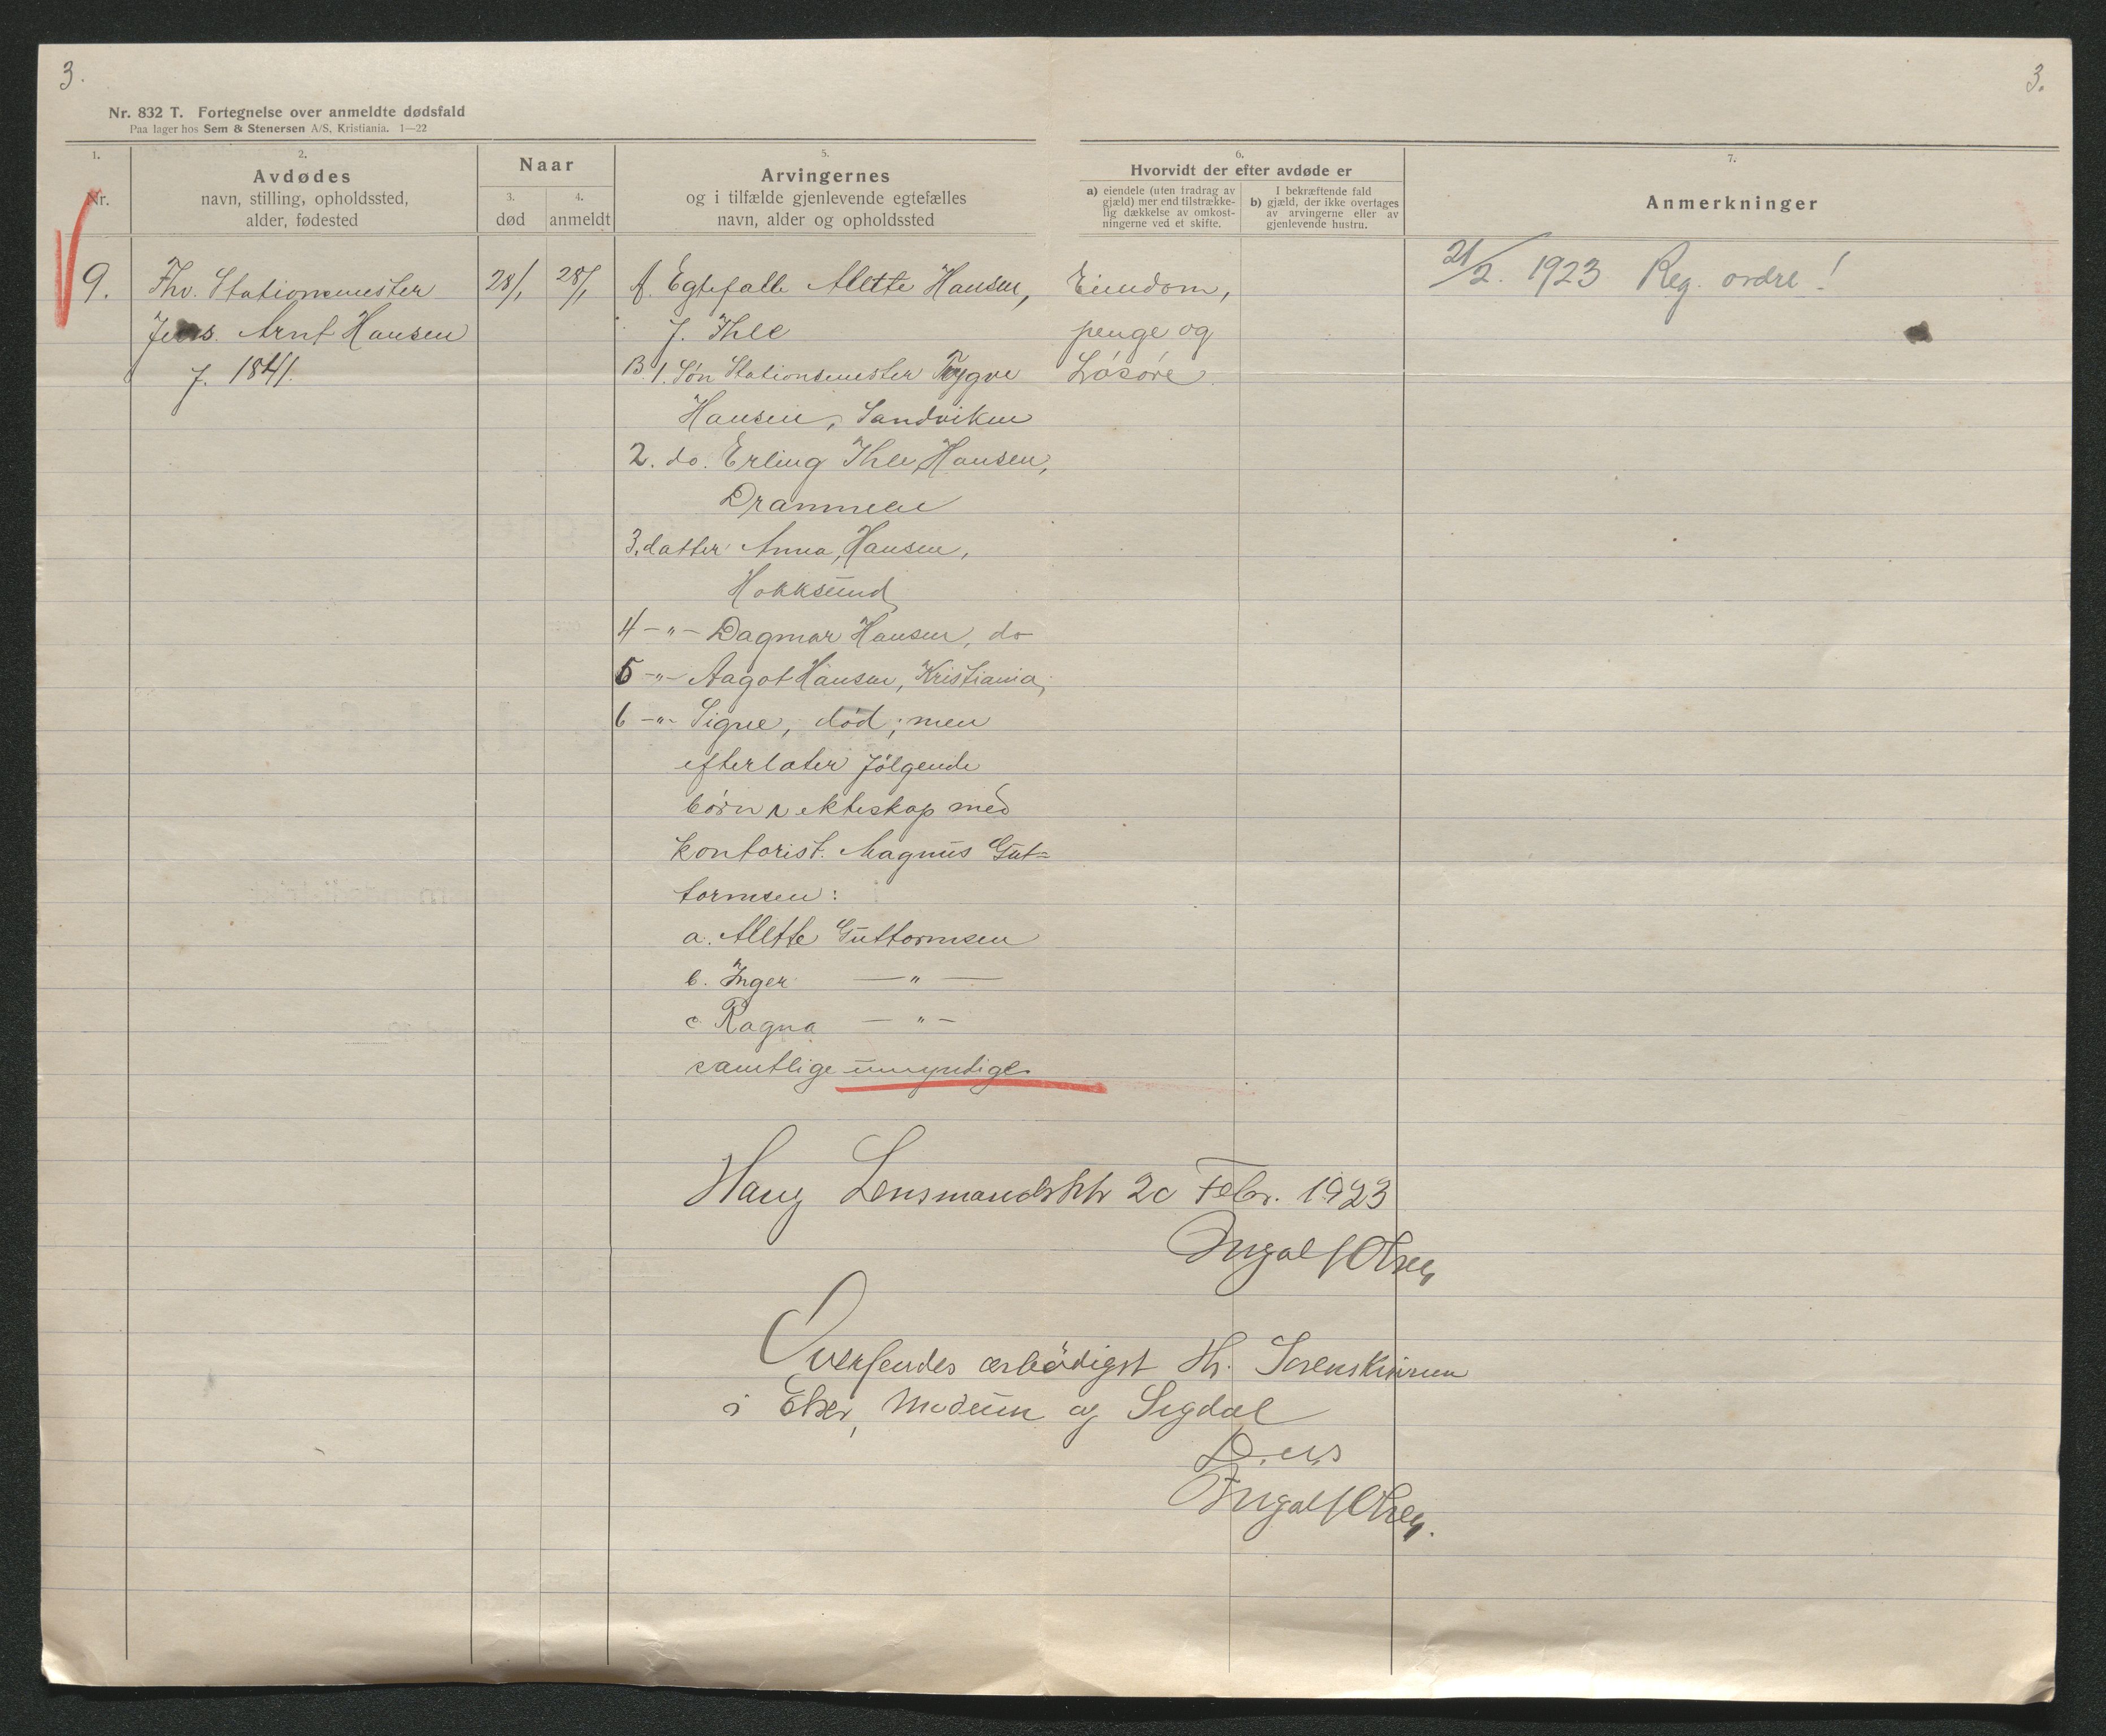 3.
3.
Nr. 832 T. Fortegnelse over anmeldte dødsfald
Paa lager hos Sem & Stenersen A/S, Kristiania. 1—22
1.
Nr.
2.
Avdødes
navn, stilling, opholdssted,
alder, fødested
Naar
3.
død
4.
anmeldt
5.
Arvingernes
og i tilfælde gjenlevende egtefælles
navn, alder og opholdssted
6.
Hvorvidt der efter avdøde er
a) eiendele (uten fradrag av
gjæld) mer end tilstrække-
lig dækkelse av omkost-
ningerne ved et skifte.
I bekræftende fald
b) gjæld, der ikke overtages
av arvingerne eller av
gjenlevende hustru.
7.
Anmerkninger
9.
Fhv. Stationsmester
Jens Arnt Hansen
f. 1841.
28/1
28/1
A. Egtefælle Alette Hansen,
f. Ihle
B 1. Søn Stationsmester Trygve
Hansen, Sandviken
2. do. Erling Ihle Hansen,
Drammen
3. datter Anna Hansen,
Hokksund
4 -"- Dagmar Hansen, do
5 -"- Aagot Hansen, Kristiania,
6 -"- Signe, død; men
efterlater følgende
børn i ekteskap med
kontorist. Magnus Gut=
tormsen:
a. Alette Guttormsen
b. Inger — " —
c Ragna — " —
samtlige umyndige
Eiendom,
penge og
Løsøre.
21/2. 1923 Reg. ordre!
Haug Lensmandsktr 20 Febr. 1923
Ingolf Olsen
Oversendes ærbødigst Hr. Sorenskriveren
i Eker, Modum og Sigdal
D. u. s
Ingolf Olsen.